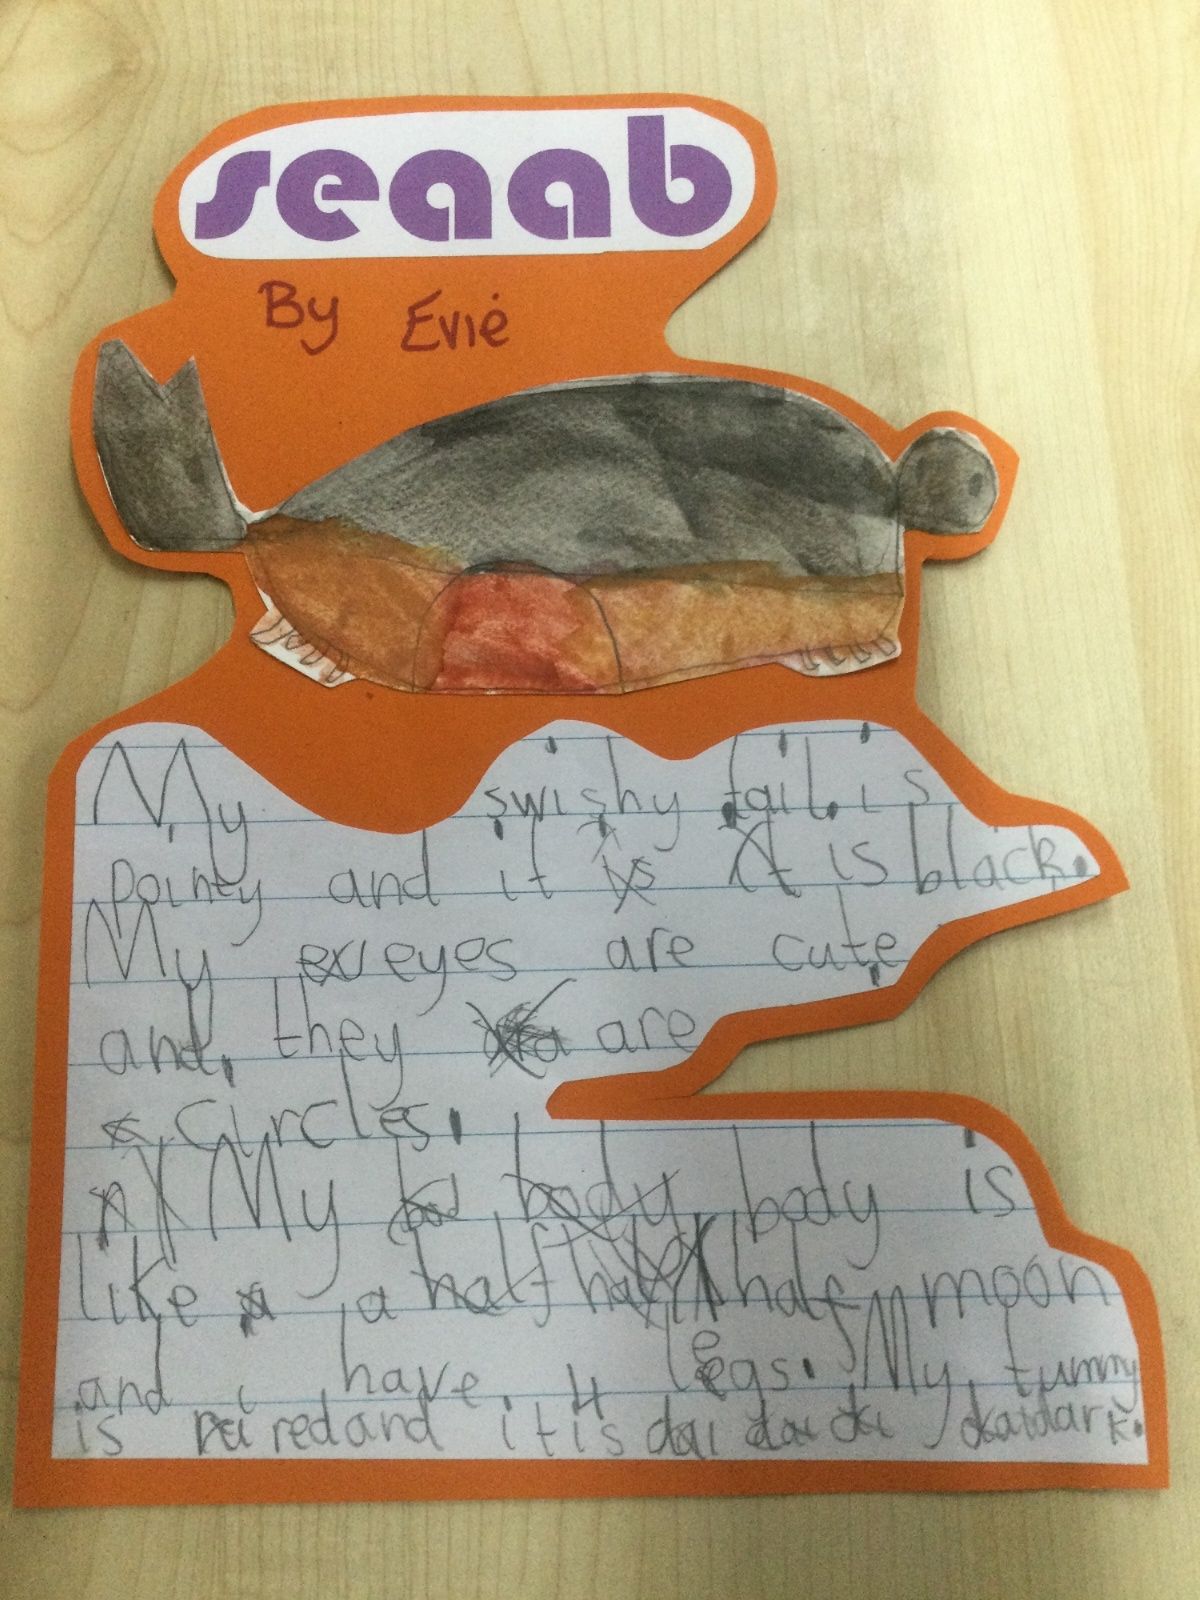 seaab
By Evie
My swishy tail is
pointy and it is it is black.
My ex eyes are cute
and they are
circles.
My bod body body is
like a a half half half moon
and i have 4 legs. My tummy
is red and it is dai dai da dai dark.